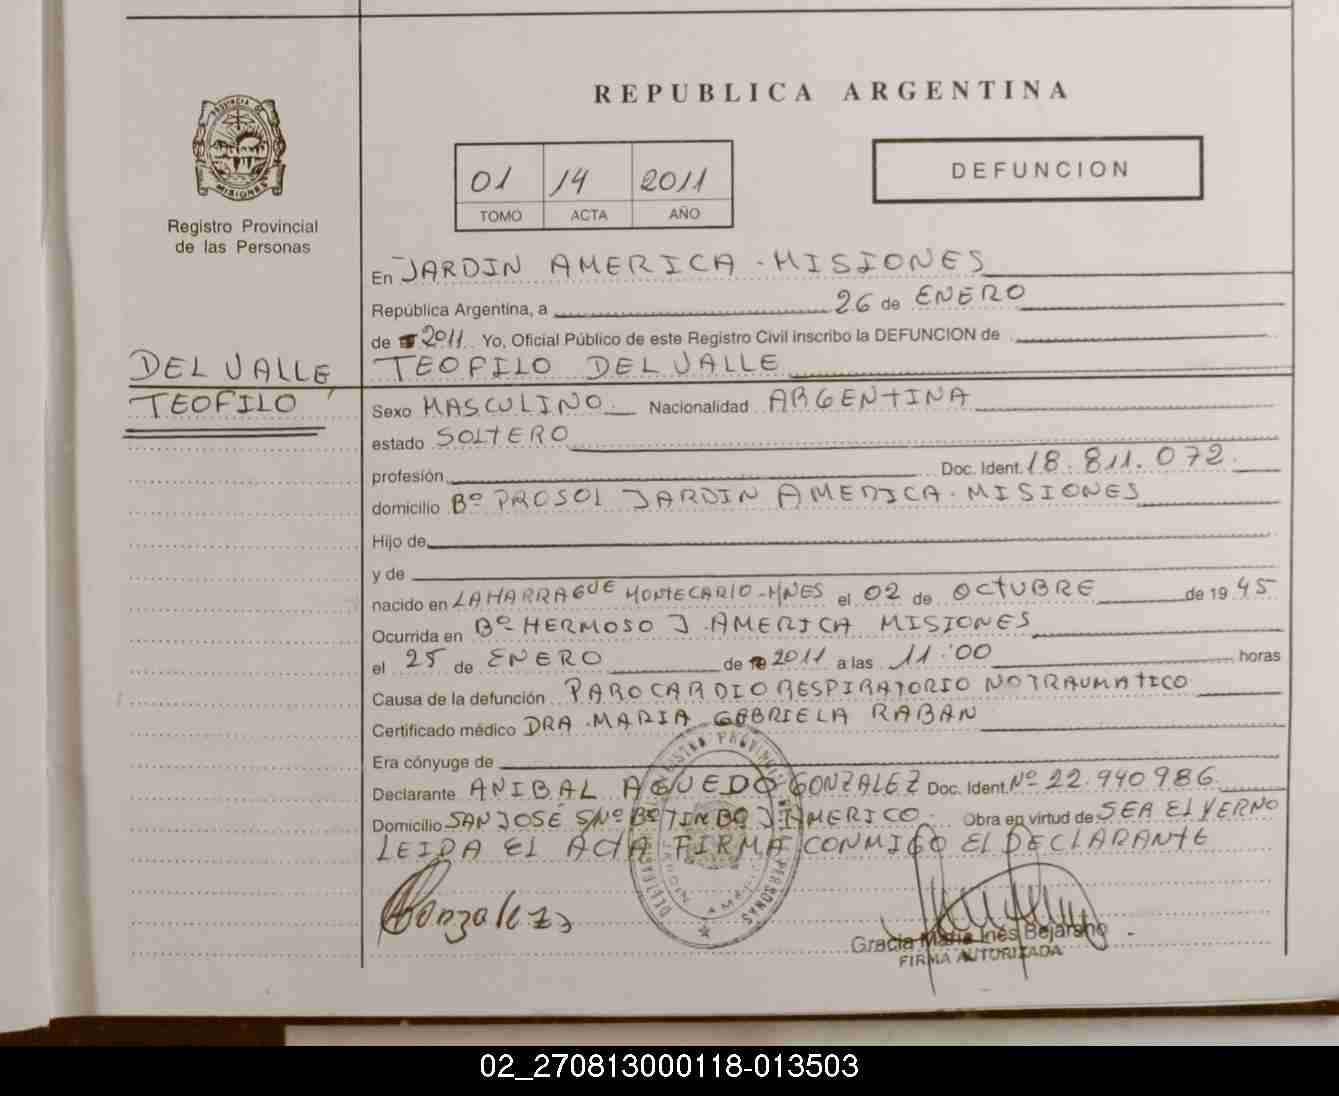 REPUBLICA ARGENTINA
PROVINCIA DE
MISIONES
Registro Provincial
de las Personas
01 14 2011
TOMO ACTA AÑO
DEFUNCION
En JARDIN AMERICA - MISIONES
República Argentina, a 26 de ENERO
de 2011 Yo, Oficial Público de este Registro Civil inscribo la DEFUNCION de
DEL VALLE
TEOFILO
TEOFILO DEL VALLE
Sexo MASCULINO Nacionalidad ARGENTINA
estado SOLTERO
profesión Doc. Ident. 18.811.072.
domicilio Bº PROSOL JARDIN AMERICA - MISIONES
Hijo de
y de
nacido en LAHARRAGUE MONTECARIO - MNES el 02 de OCTUBRE de 19 45
Ocurrida en Bº HERMOSO J. AMERICA MISIONES
el 25 de ENERO de 2011 a las 11:00 horas
Causa de la defunción PARO CARDIO RESPIRATORIO NO TRAUMATICO
Certificado médico DRA. MARIA GABRIELA RABAN
Era cónyuge de
Declarante ANIBAL AGUEDO GONZALEZ Doc. Ident. Nº 22.940986.
Domicilio SAN JOSÉ SNº Bº TIMBO J. AMERICO Obra en virtud de SEA EL YERNO
LEIDA EL ACTA FIRMA CONMIGO EL DECLARANTE
Gonzalez
Gracia María Inés Bejarano
FIRMA AUTORIZADA
02_270813000118-013503